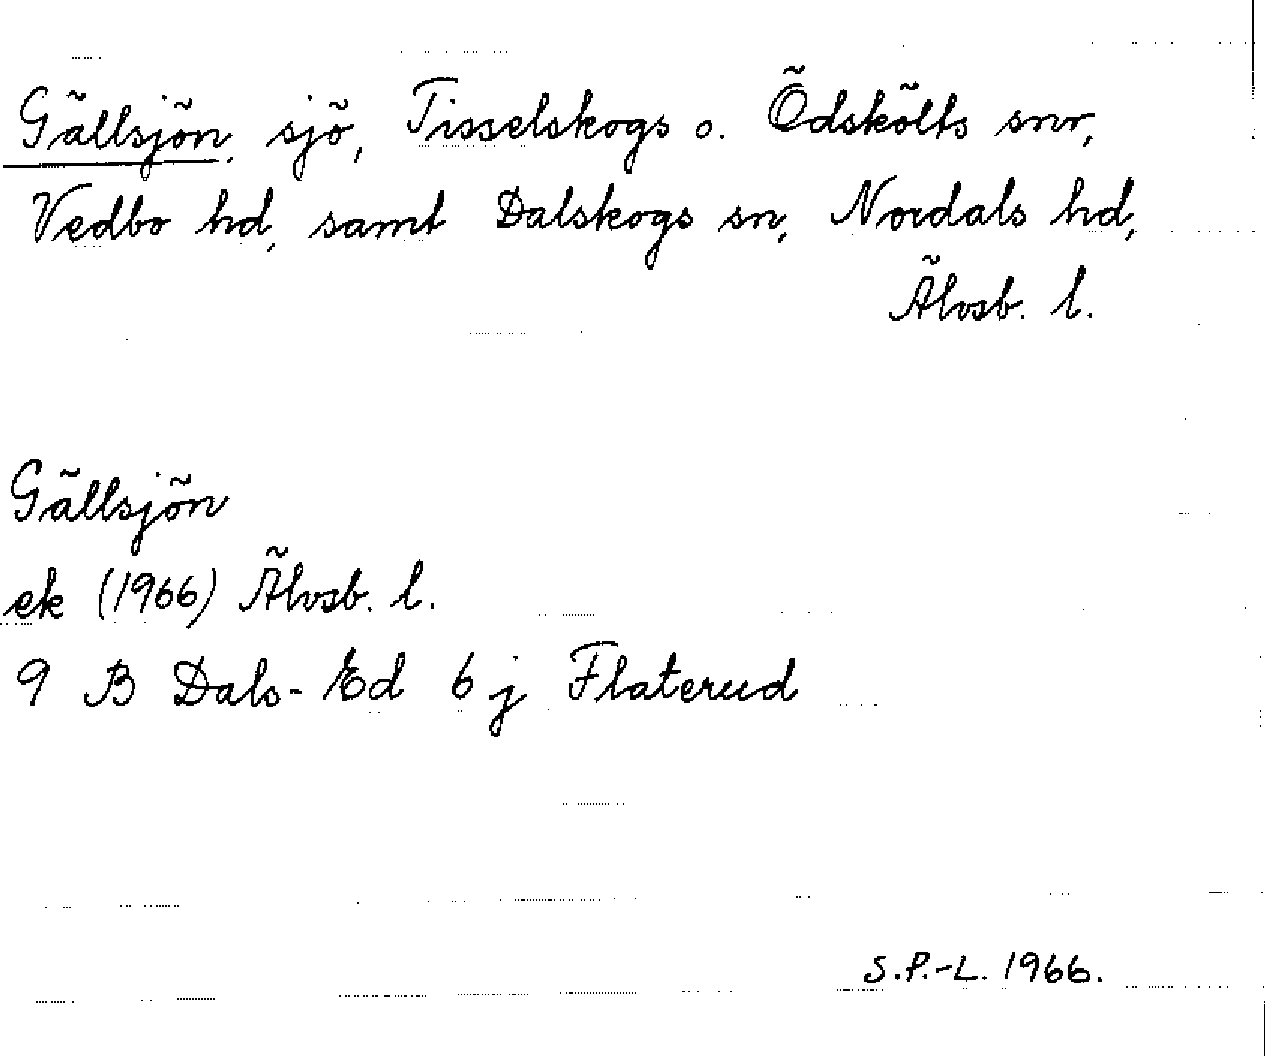 Gällsjön, sjö, Tisselskogs o. Ödskölts snr,
Vedbo hd, samt Dalskogs sn, Nordals hd,
Älvsb. l.
Gällsjön
ek (1966) Älvsb. l.
9 B Dals-Ed 6 j Flaterud
S.P.-L. 1966.